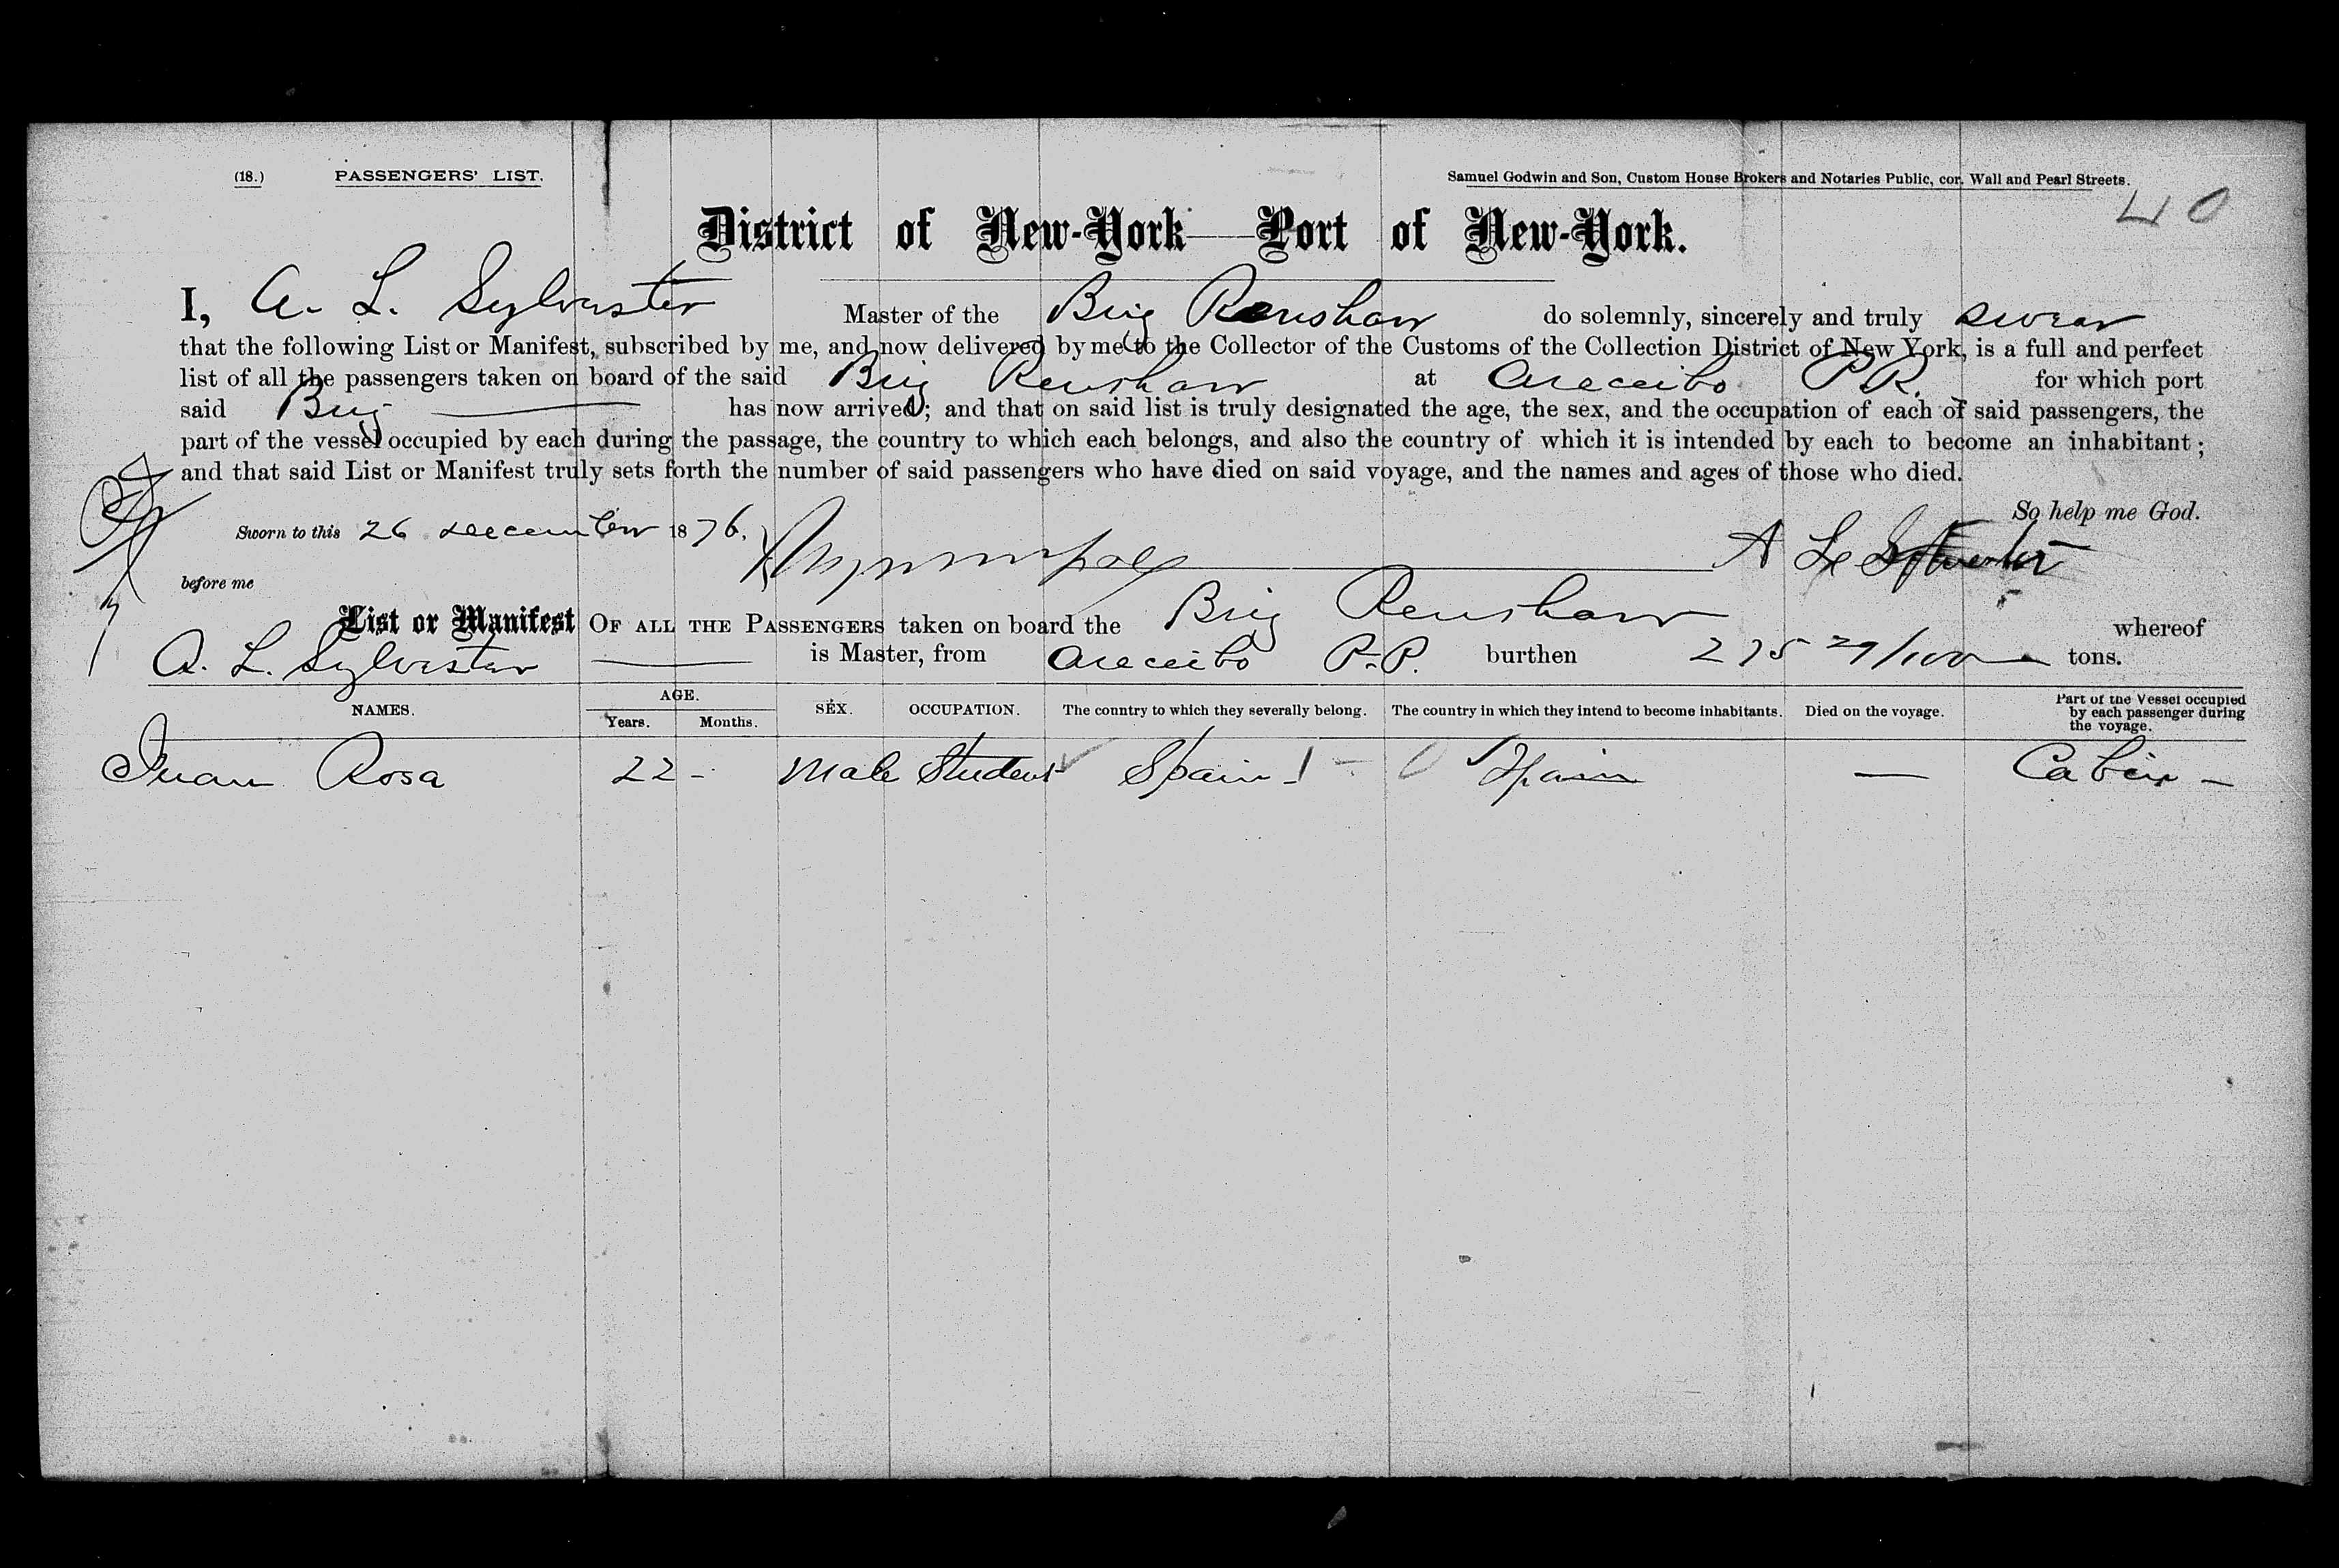 (18.) PASSENGERS' LIST. Samuel Godwin and Son, Custom House Brokers and Notaries Public, cor. Wall and Pearl Streets.
40
District of New-York—Port of New-York.
I, A. L. Sylvester Master of the Brig Renshaw do solemnly, sincerely and truly swear
that the following List or Manifest, subscribed by me, and now delivered by me to the Collector of the Customs of the Collection District of New York, is a full and perfect
list of all the passengers taken on board of the said Brig Renshaw at Areceibo P.R. for which port
said Brig — has now arrived; and that on said list is truly designated the age, the sex, and the occupation of each of said passengers, the
part of the vessel occupied by each during the passage, the country to which each belongs, and also the country of which it is intended by each to become an inhabitant;
and that said List or Manifest truly sets forth the number of said passengers who have died on said voyage, and the names and ages of those who died.
So help me God.
Sworn to this 26 December 1876.
A L Sylvester
before me
List or Manifest OF ALL THE PASSENGERS taken on board the Brig Renshaw whereof
A. L. Sylvester — is Master, from Areceibo P.R. burthen 275 29/100 tons.
NAMES. AGE. Years. Months. SEX. OCCUPATION. The country to which they severally belong. The country in which they intend to become inhabitants. Died on the voyage. Part of the Vessel occupied by each passenger during the voyage.
Juan Rosa 22 - Male Student Spain - 1 - 0 Spain — Cabin -